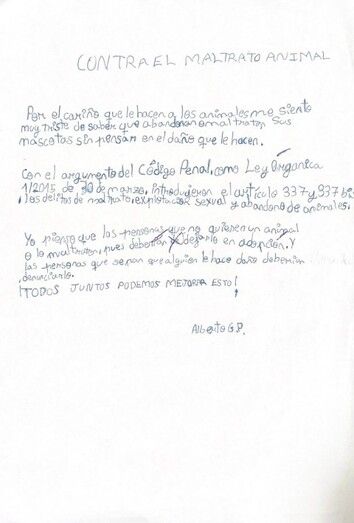 CONTRA EL MALTRATO ANIMAL
Por el cariño que le hacen a los animales me siento
muy triste de saber que abandonan o maltratan sus
mascotas sin pensar en el daño que le hacen.
Con el argumento del Código Penal, como Ley Órganica
1/2015, de 30 de marzo, introdujeron el artículo 337 y 337 bis
, los delitos de maltrato, explotación sexual y abandono de animales.
Yo pienso que las personas que no quieren un animal
o lo maltraten, pues deberían dejarlo en adopción. Y
las personas que sepan que alguien le hace daño deberían
denunciarlo.
¡TODOS JUNTOS PODEMOS MEJORAR ESTO!
Alberto G.P.